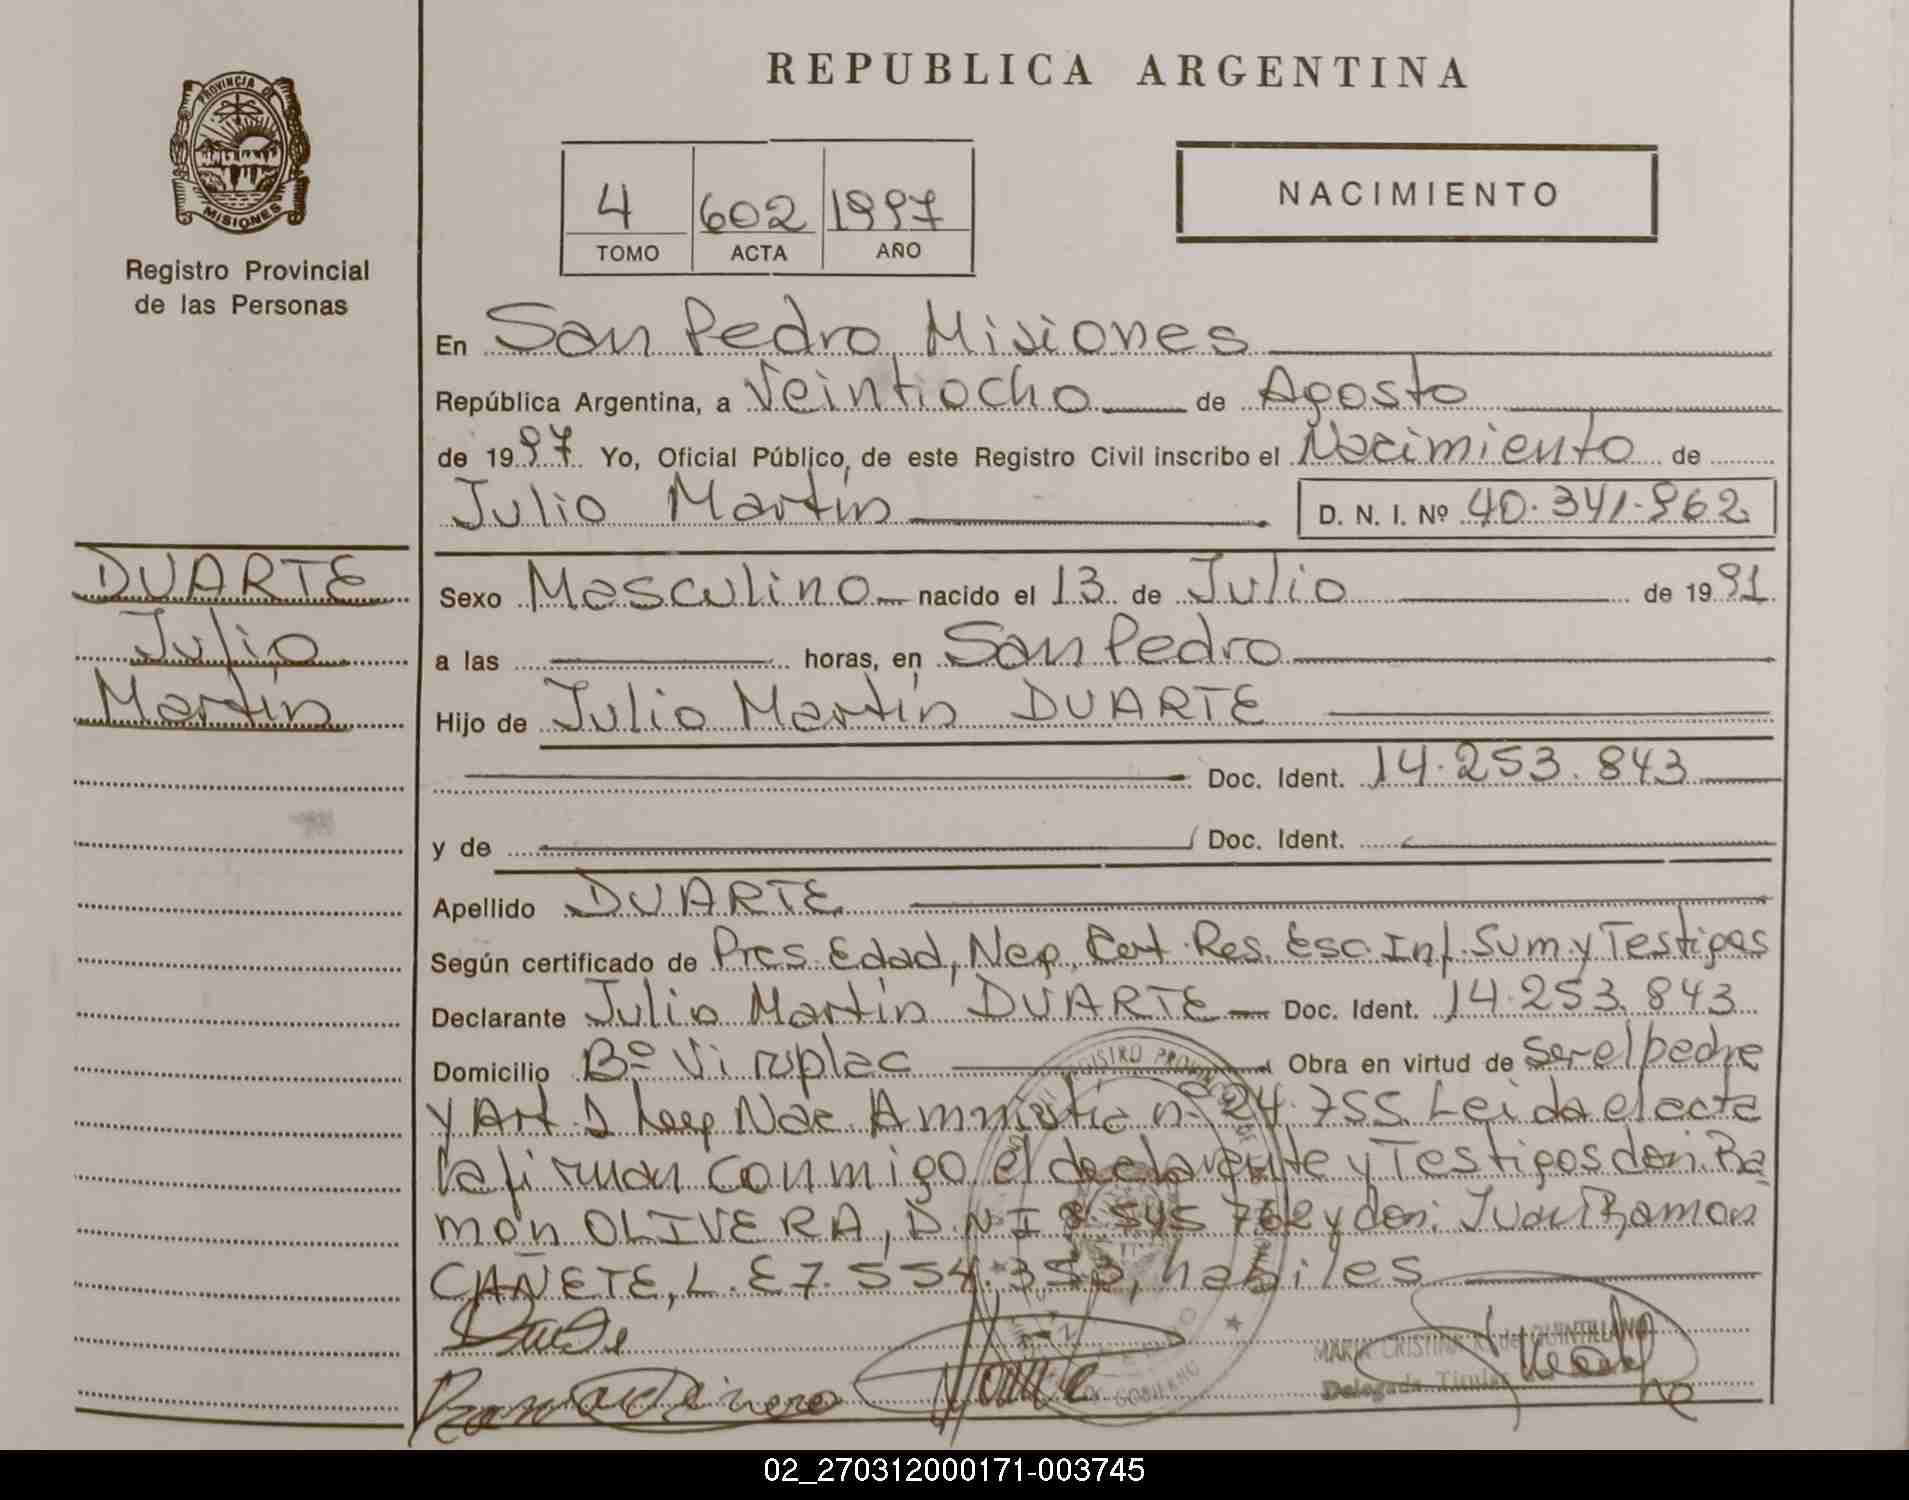 REPUBLICA ARGENTINA
PROVINCIA DE
MISIONES
Registro Provincial
de las Personas
4 602 1997
TOMO ACTA AÑO
NACIMIENTO
En San Pedro, Misiones
República Argentina, a Veintiocho de Agosto
de 1997 Yo, Oficial Público, de este Registro Civil inscribo el Nacimiento de
Julio Martín D. N. I. Nº 40.341.962
DUARTE
Julio
Martín
Sexo Masculino nacido el 13 de Julio de 1991
a las horas, en San Pedro
Hijo de Julio Martín DUARTE
Doc. Ident. 14.253.843
y de Doc. Ident.
Apellido DUARTE
Según certificado de Pres. Edad, Neg. Cert. Res. Esc. Inf. Sum. y Testigos
Declarante Julio Martín DUARTE Doc. Ident. 14.253.843
Domicilio Bº Obra en virtud de ser el padre
y Art. 1 Ley Nac. Amnistía nº 24.755. Leida el acta
la firman conmigo el declarante y Testigos don: Ra
món OLIVERA, D.N.I 8.545.762 y don: Juan Ramon
CAÑETE, L.E 7.554.353, habiles
Duarte
MARIA CRISTINA de QUINTILLANO
Delegada Titular
02_270312000171-003745